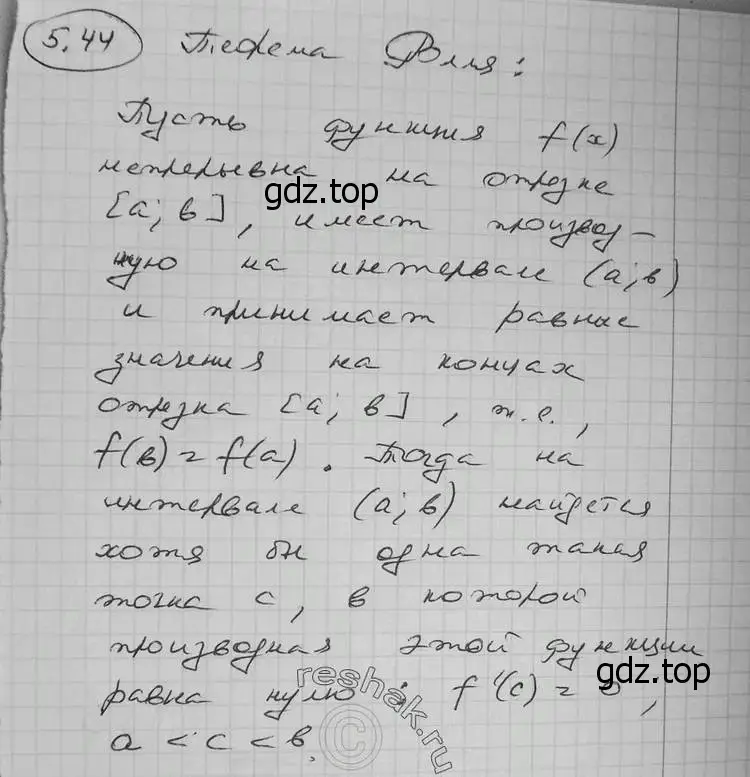 5.44 Теорема Ролля:
Пусть функция f(x)
непрерывна на отрезке
[a; в], имеет производ-
ную на интервале (a; в)
и принимает равные
значения на концах
отрезка [a; в], т.е.,
f(в) = f(a). Тогда на
интервале (a; в) найдется
хотя бы одна такая
точка c, в которой
производная этой функции
равна нулю: f'(c) = 0,
a < c < в.
gdz.top
gdz.top
reshak.ru
©